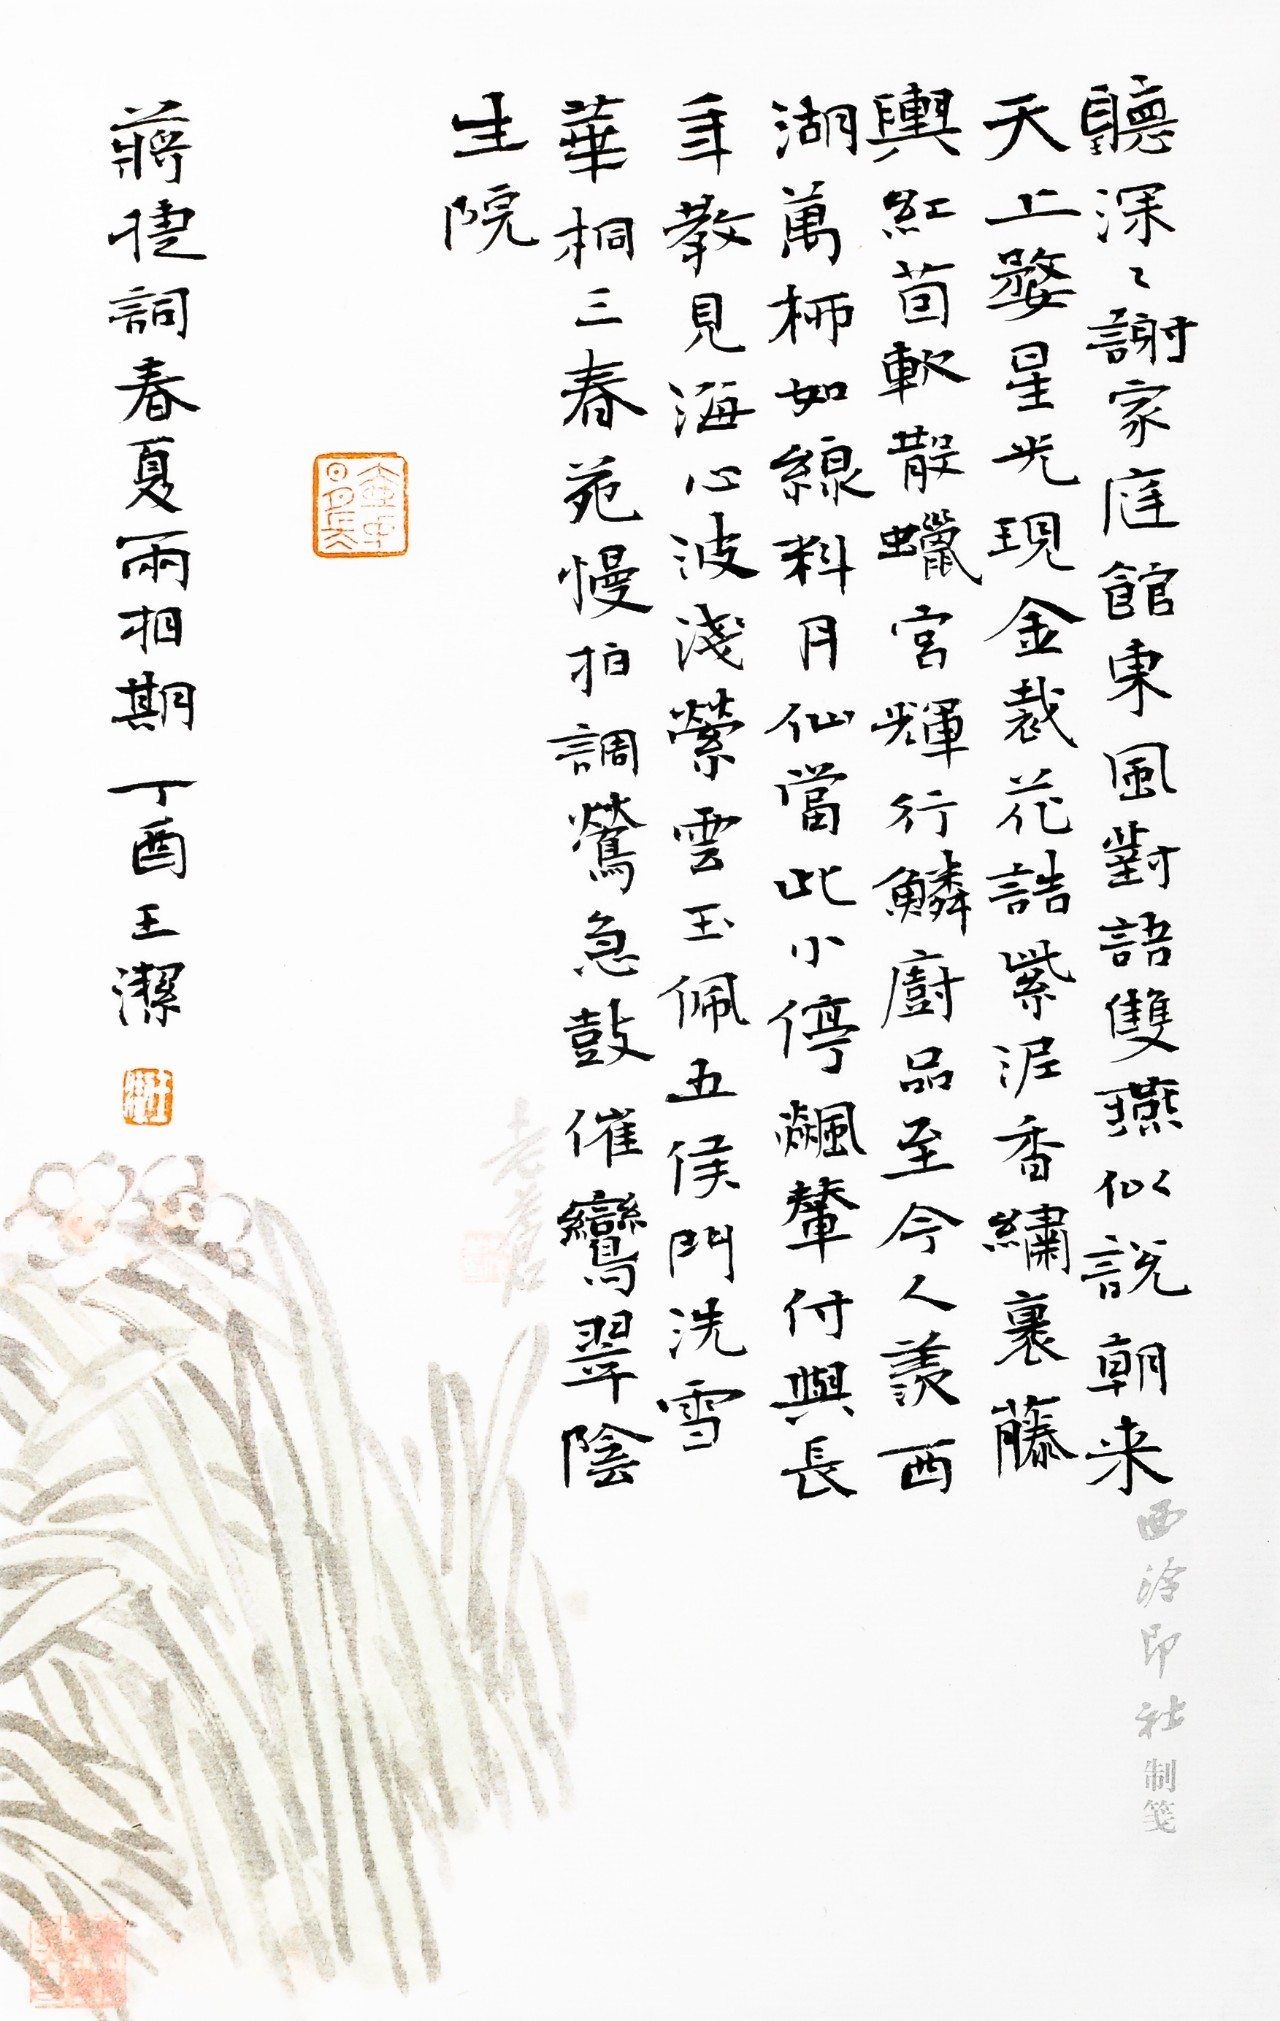 聽深〻謝家庭館東風對語雙燕似說朝来
天上婺星光現金裁花誥紫泥香繡裹藤
輿紅茵軟散蠟宮輝行鱗廚品至今人羨西
湖萬柳如線料月仙當此小停飆輦付與長
年教見海心波淺縈雲玉佩五侯門洗雪
華桐三春苑慢拍調鶯急鼓催鸞翠陰
生院
蔣捷詞春夏兩相期 丁酉王潔
西泠印社制笺